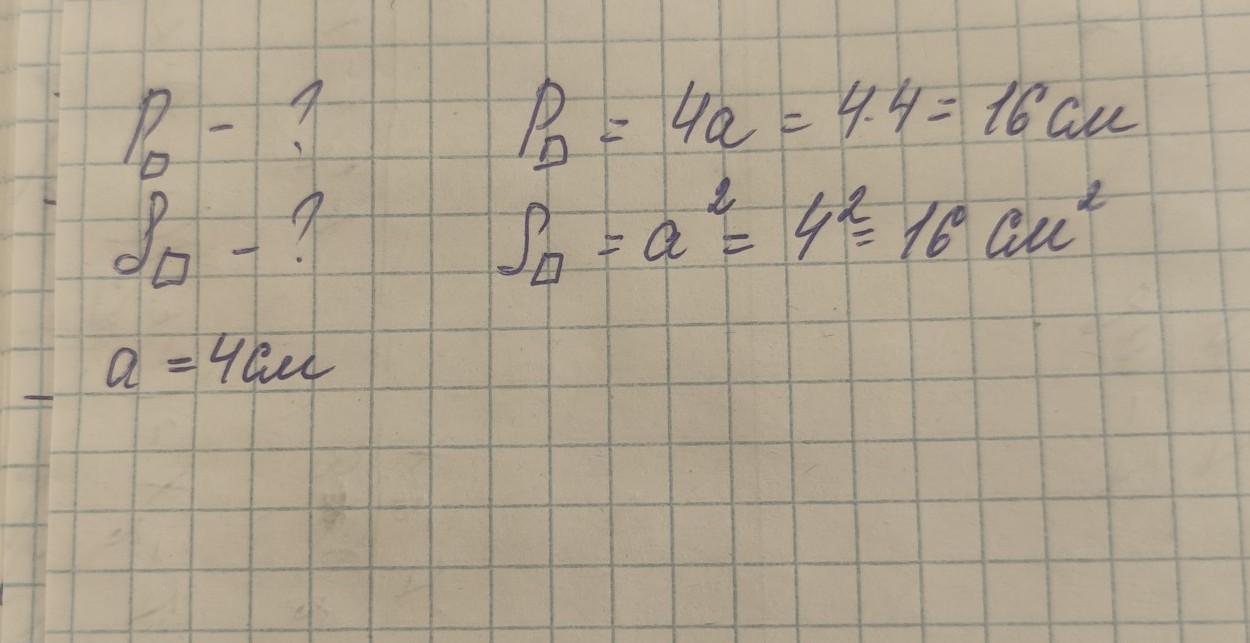 P□ - ?
S□ - ?
a = 4см
P□ = 4a = 4·4 = 16 см
S□ = a² = 4² = 16 см²